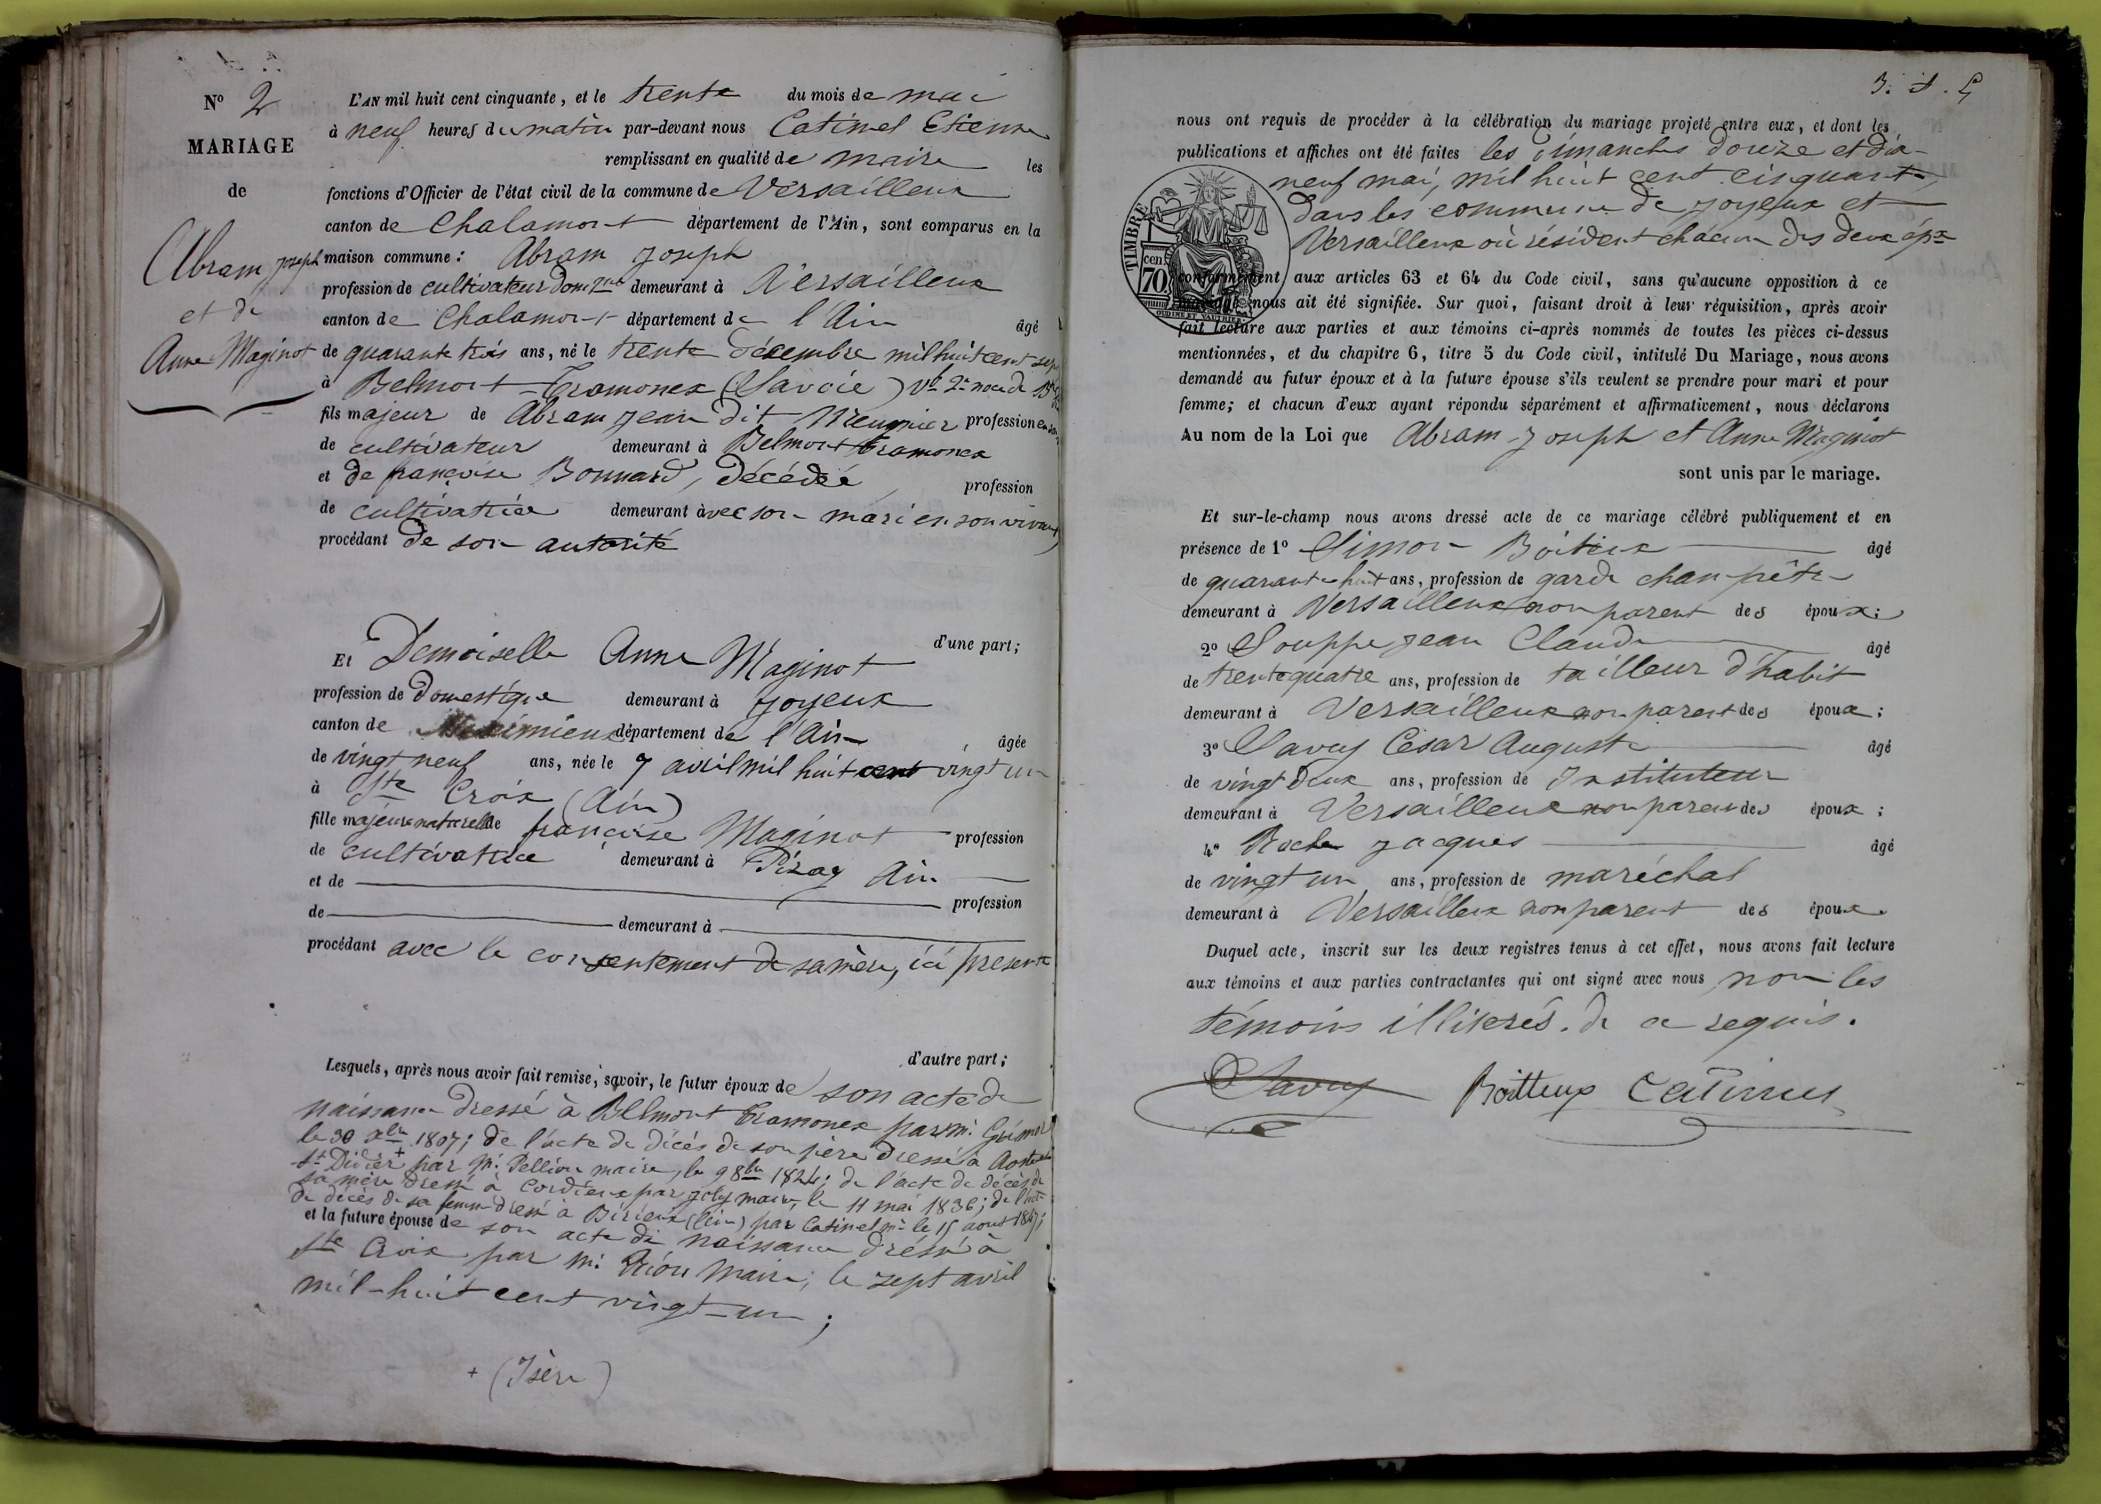 N° 2
MARIAGE
de
Abram Joseph
et de
Anne Maginot
L'AN mil huit cent cinquante, et le trente du mois de mai
à neuf heures du matin par-devant nous Catinel Etienne
remplissant en qualité de maire les
fonctions d'Officier de l'état civil de la commune de Versailleux
canton de Chalamont département de l'Ain, sont comparus en la
maison commune: Abram Joseph
profession de cultivateur domque demeurant à Versailleux
canton de Chalamont département de l'Ain âgé
de quarante trois ans, né le trente décembre mil huit cent sept
à Belmont Tramonex (Savoie) vf 2e noce de
fils majeur de Abram Jean dit Meunier profession
de cultivateur demeurant à Belmont Tramonex
et de françoise Bonnard, décédée profession
de cultivatrice demeurant avec son mari en son vivant
procédant de son autorité
d'une part;
Et Demoiselle Anne Maginot
profession de domestique demeurant à Joyeux
canton de Meximieux département de l'Ain âgée
de vingt neuf ans, née le 7 avril mil huit cent vingt un
à Ste Croix (Ain)
fille majeure naturelle de françoise Maginot profession
de cultivatrice demeurant à Pizay Ain
et de profession
de demeurant à
procédant avec le consentement de sa mère, ici présente
d'autre part;
Lesquels, après nous avoir fait remise, savoir, le futur époux de son acte de
naissance dressé à Bellmont Tramonex par m.
le 30 xbre 1807; de l'acte de décès de son père dressé à Aoste
St Didier + par Mr. Pellion maire, le 9 8bre 1824; de l'acte de décès de
sa mère dressé à Cordieux par Joly maire, le 11 mai 1836; de l'acte
de décès de sa femme dressé à Birieux (Ain) par Catinel m. le 15 aout 1847;
et la future épouse de son acte de naissance dressé à
Ste Croix par M. maire, le sept avril
mil-huit cent vingt-un;
+ (Isère)
nous ont requis de procéder à la célébration du mariage projeté entre eux, et dont les
publications et affiches ont été faites les dimanches douze et dix-
neuf mai, mil huit cent cinquante,
dans les commune de Joyeux et
Versailleux où résident chacun des deux épx
TIMBRE
70 cen.
OUDINE ET VAUTHIER
conformément aux articles 63 et 64 du Code civil, sans qu'aucune opposition à ce
mariage nous ait été signifiée. Sur quoi, faisant droit à leur réquisition, après avoir
fait lecture aux parties et aux témoins ci-après nommés de toutes les pièces ci-dessus
mentionnées, et du chapitre 6, titre 5 du Code civil, intitulé Du Mariage, nous avons
demandé au futur époux et à la future épouse s'ils veulent se prendre pour mari et pour
femme; et chacun d'eux ayant répondu séparément et affirmativement, nous déclarons
Au nom de la Loi que Abram Joseph et Anne Maginot
sont unis par le mariage.
Et sur-le-champ nous avons dressé acte de ce mariage célébré publiquement et en
présence de 1° Simon Boiteux âgé
de quarante huit ans, profession de garde champêtre
demeurant à Versailleux non parent des époux;
2° Souppe Jean Claude âgé
de trente quatre ans, profession de tailleur d'habit
demeurant à Versailleux non parent des époux;
3° Savuy César Auguste âgé
de vingt deux ans, profession de Instituteur
demeurant à Versailleux non parens des époux;
4° Roche Jacques âgé
de vingt un ans, profession de maréchal
demeurant à Versailleux non parent des époux.
Duquel acte, inscrit sur les deux registres tenus à cet effet, nous avons fait lecture
aux témoins et aux parties contractantes qui ont signé avec nous non les
témoins illiterés. de ce requis.
Savuy Boitteux Catinel